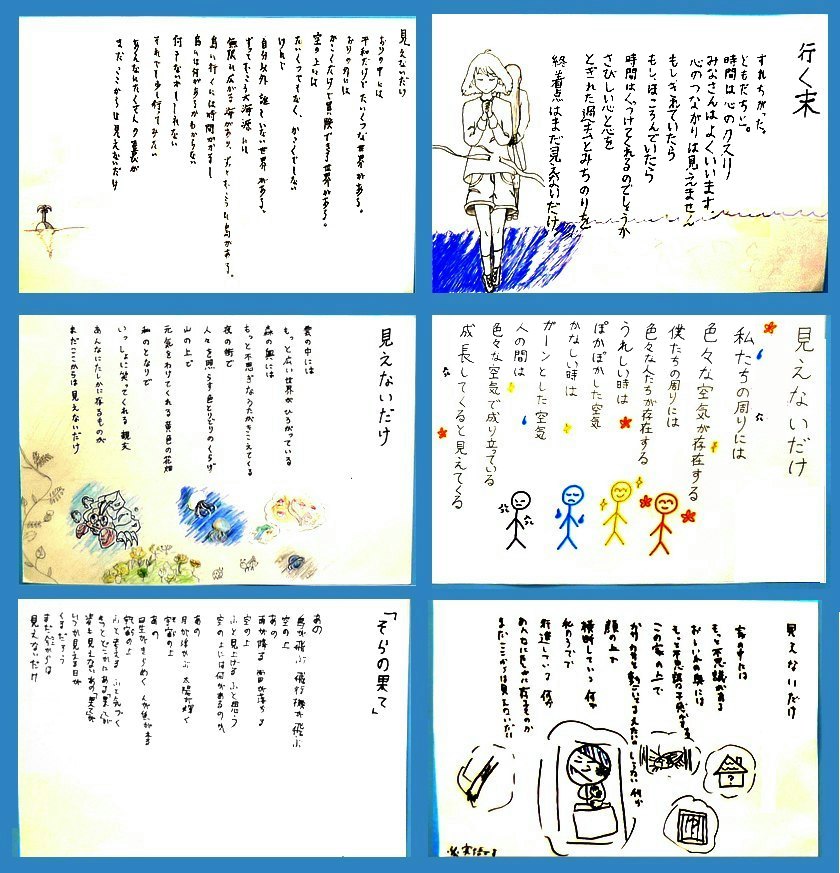 見えないだけ
おりの中には
平和だけどたいくつな世界がある。
おりの外には
かこくだけど冒険できる世界がある。
空の上には
たいくつでもなく、かこくでもない
けれど
自分以外誰もいない世界がある。
ずっとむこう大海原には
無限に広がる海があり、ずっとむこうには島がある。
島に行くには時間がかかるし
島には何があるかもわからない
何もないかもしれない
それでも少し行ってみたい
あんなにたくさんの喜びが
まだここからは見えないだけ
行く末
すれちがった。
ともだちと。
時間は心のクスリ
みなさんはよくいいます。
心のつながりは見えません
もしきれていたら
もしほころんでいたら
時間はくっつけてくれるのでしょうか
さびしい心と心を
とぎれた過去とみちのりを
終着点はまだ見えないだけ。
見えないだけ
雲の中には
もっと広い世界がひろがっている
森の奥には
もっと不思議なうたがきこえてくる
夜の街で
人々を照らす色とりどりのくらげ
山の上で
元気をわけてくれる黄色の花畑
私のとなりで
いっしょに笑ってくれる親友
あんなにたしかに在るものが
まだここからは見えないだけ
見えないだけ
私たちの周りには
色々な空気が存在する
僕たちの周りには
色々な人たちが存在する
うれしい時は
ぽかぽかした空気
かなしい時は
ガーンとした空気
人の間は
色々な空気で成り立っている
成長してくると見えてくる
「そらの果て」
あの
空の上
鳥が飛ぶ 飛行機が飛ぶ
あの
空の上
雨が降る 雷が落ちる
ふと見上げる ふと思う
空の上には何があるのか
あの
宇宙の上
月が浮かぶ 太陽が輝く
あの
宇宙の上
星がきらめく
ふと考える ふと気づく
いつか見える日が
くるだろう
まだ
見えないだけ
見えないだけ
家の中には
もっと不思議がある
おしいれの奥には
この家の上で
顔の上で
横断している 何か
私のうでで
行進している 何か
あんなにたしかに在るものが
まだここからは見えないだけ
※実話です